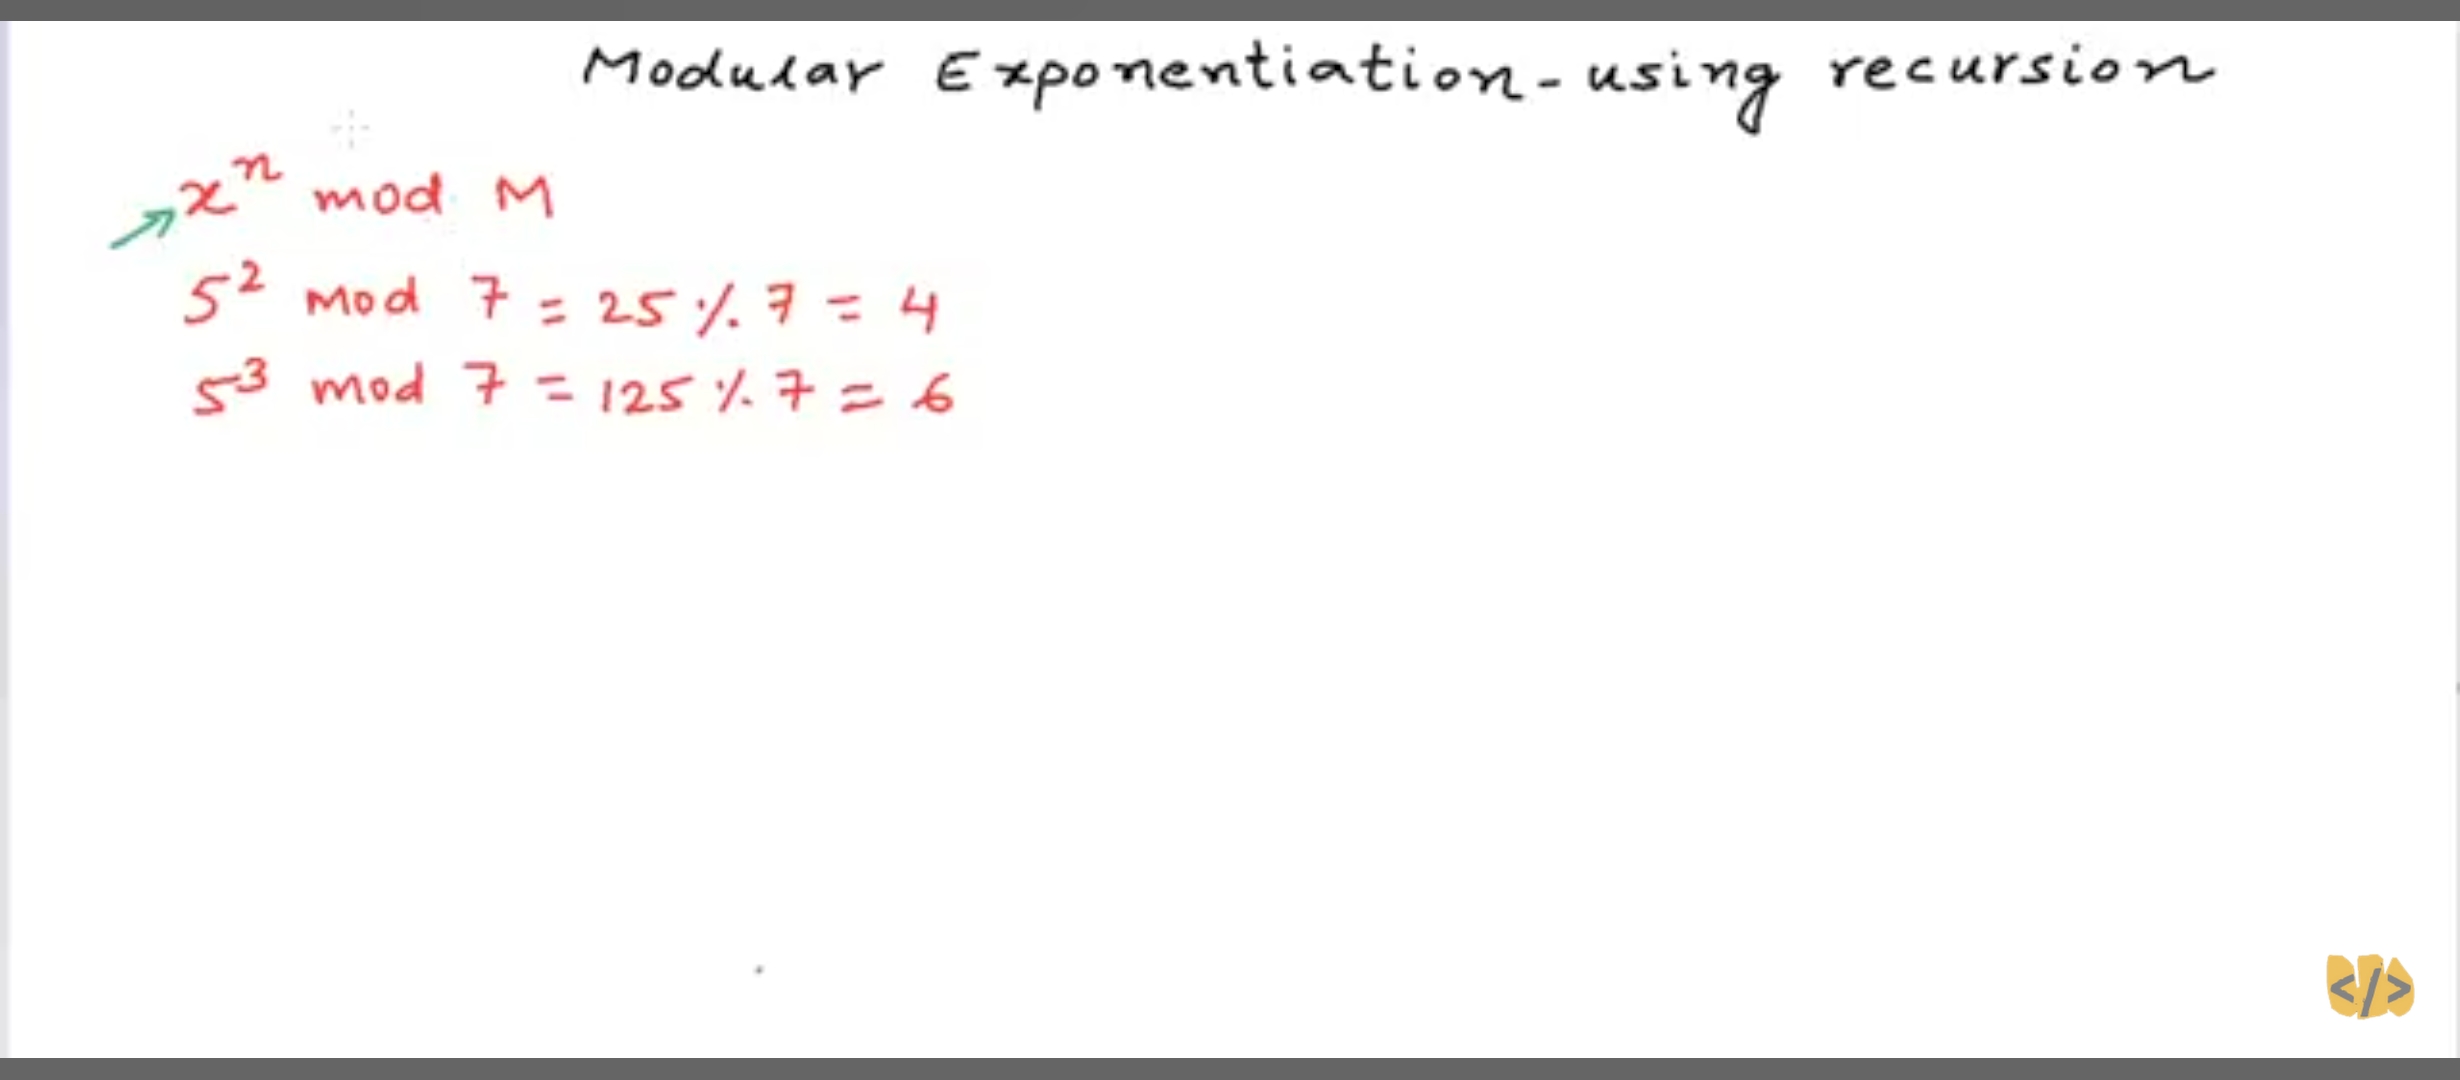 Modular Exponentiation - using recursion
xⁿ mod M
5² mod 7 = 25 % 7 = 4
5³ mod 7 = 125 % 7 = 6
</>